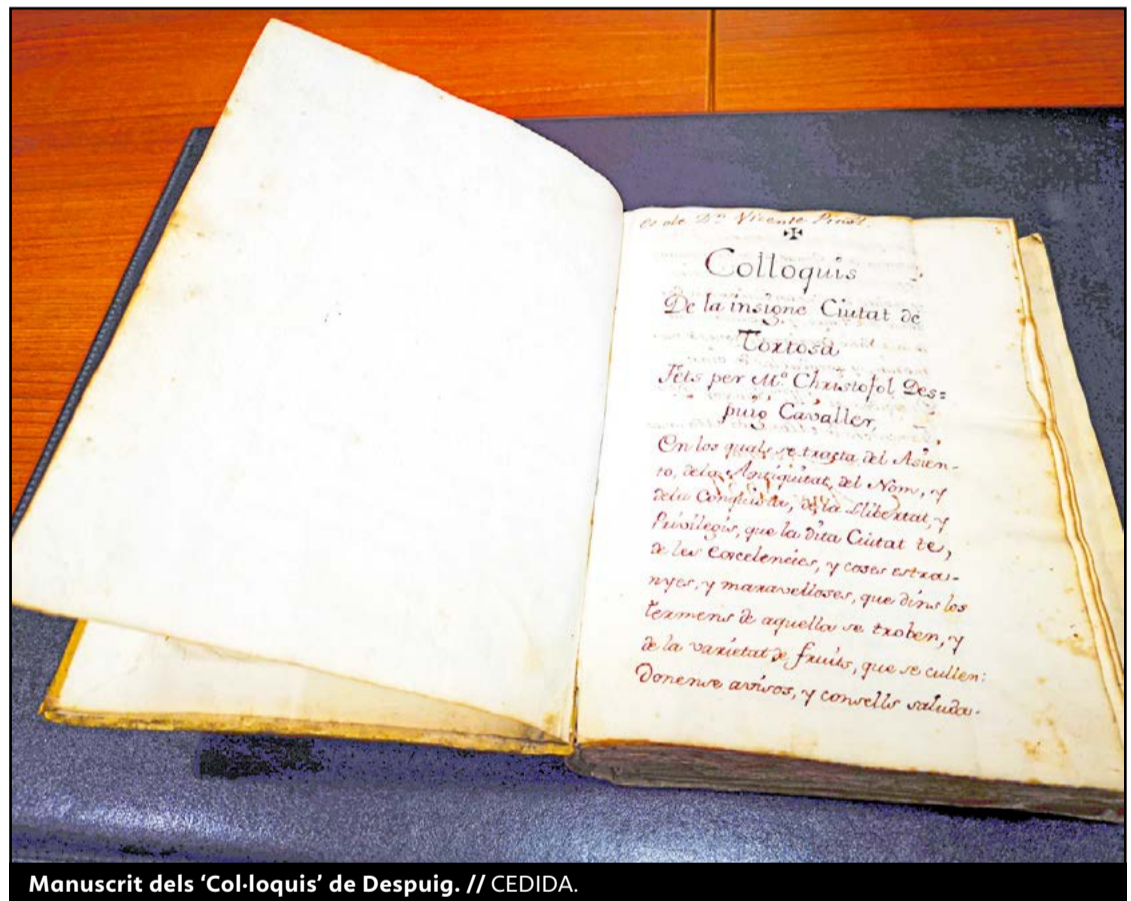 es de Dn Vicente Pinol.
Colloquis
De la insigne Ciutat de
Tortosa
Fets per Mo. Christofol Des=
puig Cavaller,
En los quals se tracta del Asien-
to, dela Antiquitat, del Nom, y
dela Conquista, de la Llibertat, y
Privilegis, que la dita Ciutat te,
de les Excelencies, y coses estra-
nyes, y maravelloses, que dins los
termens de aquella se troben, y
de la varietat de fruits, que se cullen:
Donense avisos, y consells saluda-
Manuscrit dels ‘Col·loquis’ de Despuig. // CEDIDA.